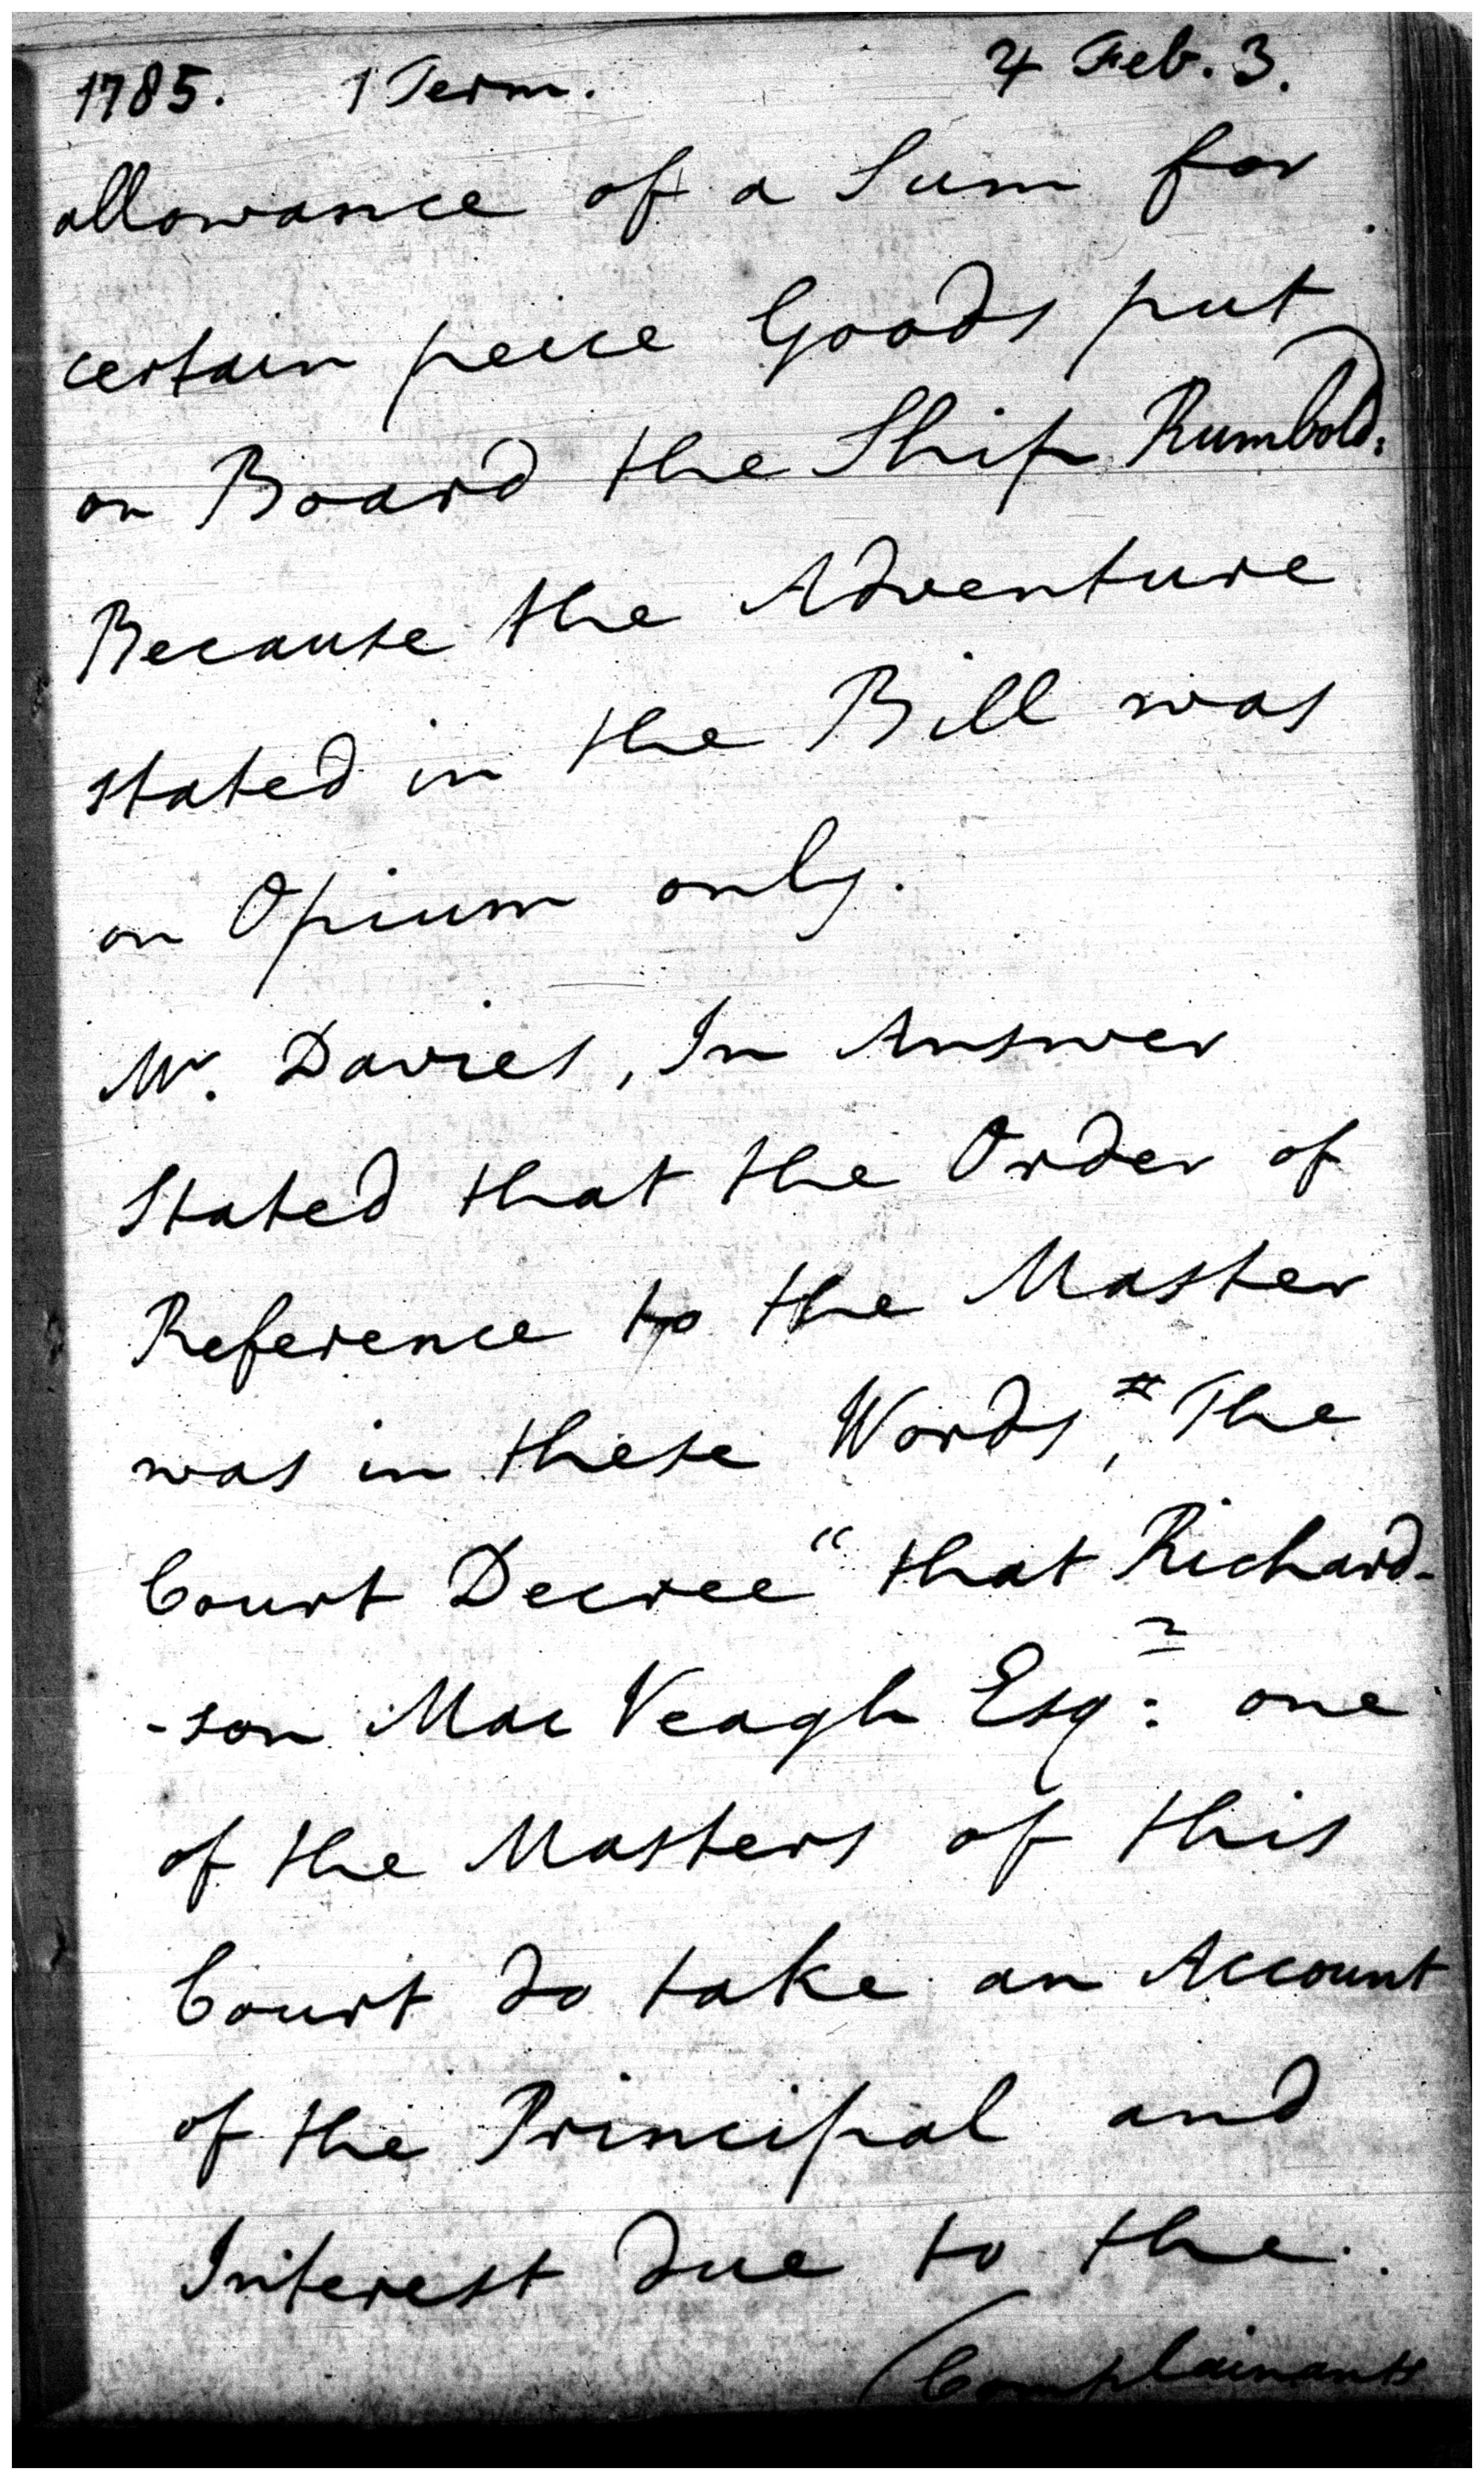 1785. 1 Term. ♃ Feb. 3.
allowance of a Sum for
certain peice Goods put
on Board the Ship Rumbold:
Because the Adventure
stated in the Bill was
on Opium only.
Mr. Davies, In Answer
Stated that the Order of
Reference to the Master
was in these Words, # The
Court Decree “ that Richard-
-son Mac Veagh Esqr: one
of the Masters of this
Court do take an Account
of the Principal and
Interest due to the
(Complainants